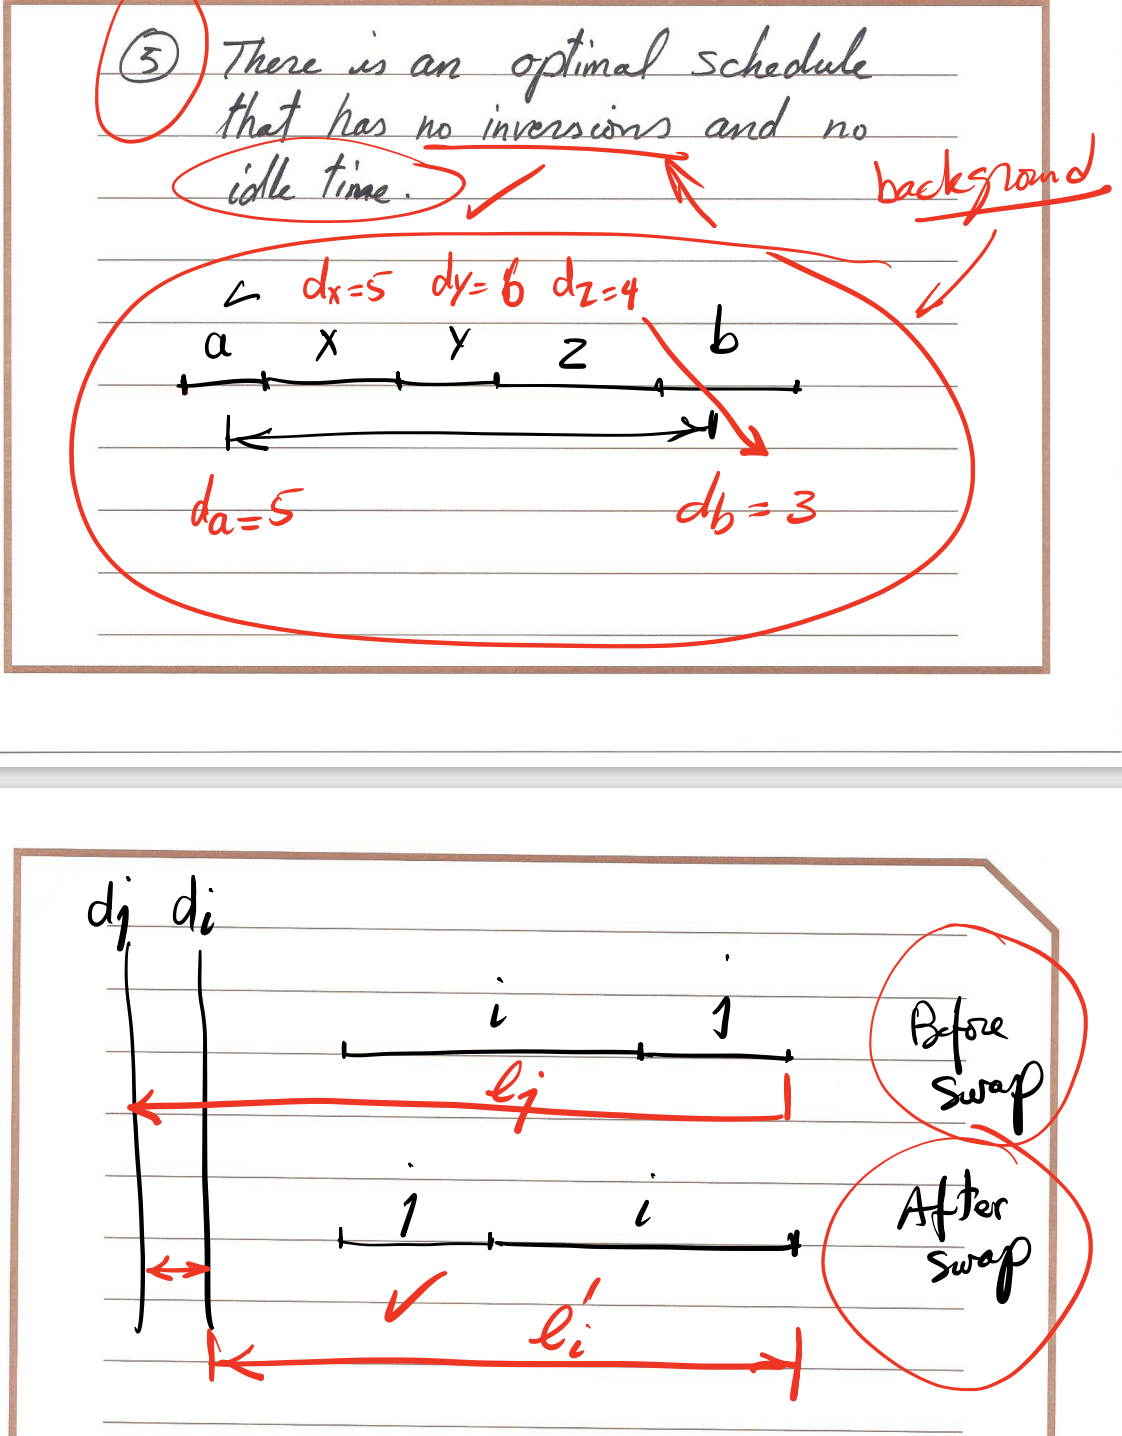 ⑤ There is an optimal schedule
that has no inversions and no
idle time.
background
dx=5 dy=6 dz=4
a x y z b
da=5 db=3
dj di
i j
Before
swap
lj
j i
After
swap
l'i